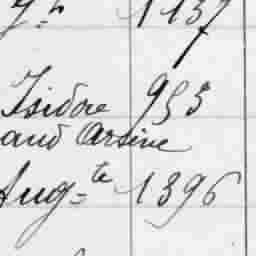 1137
Isidore 953
and Arsine
Aug-te 1396